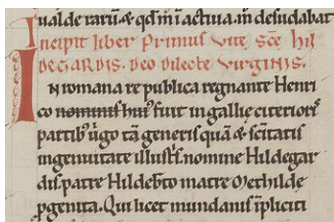 ualde raru & qd m i actiua m desudabat
Incipit liber Primus Vite Sce hil
DEGARDIS. Deo dilecte Virginis.
N romana re publica regnante Henri
co nominis hui fuit in gallie citerioris
partib uirgo ta generis qua & scitatis
ingenuitate illustris nomine Hildegar
dis. patre Hildebto matre Methilde
pgenita. Qui licet mundanis ipliciti